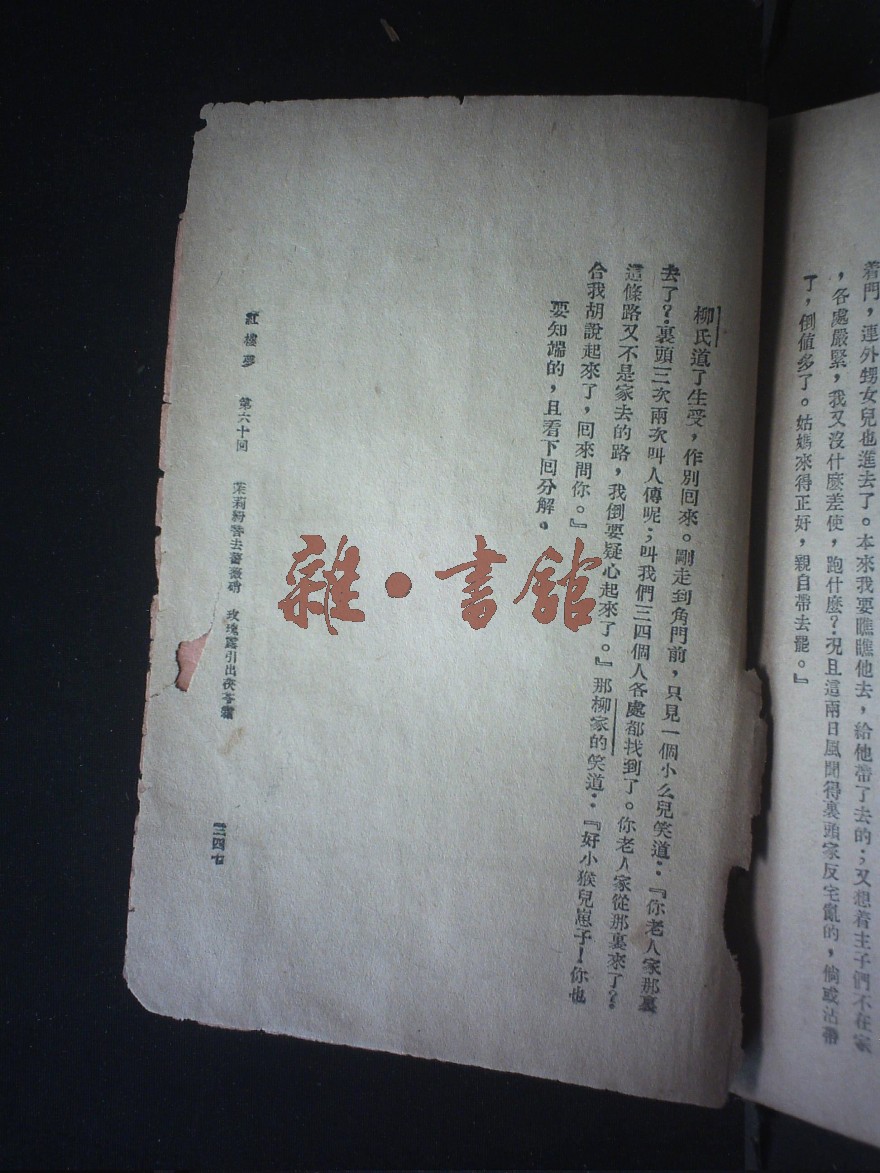 着門，連外甥女兒也進去了。本來我要瞧瞧他去，給他帶了去的；又想着主子們不在家
，各處嚴緊，我又沒什麼差使，跑什麼？況且這兩日風聞得裏頭家反宅亂的，倘或沾帶
了，倒値多了。姑媽來得正好，親自帶去罷。』
柳氏道了生受，作別回來。剛走到角門前，只見一個小么兒笑道：『你老人家那裏
去了？裏頭三次兩次叫人傳呢；叫我們三四個人各處都找到了。你老人家從那裏來了？
這條路又不是家去的路，我倒要疑心起來了。』那柳家的笑道：『好小猴兒崽子！你也
合我胡說起來了，回來問你。』
要知端的，且看下回分解。
紅樓夢　第六十回　茉莉粉替去薔薇硝　玫瑰露引出茯苓霜　三四七
雜·書館